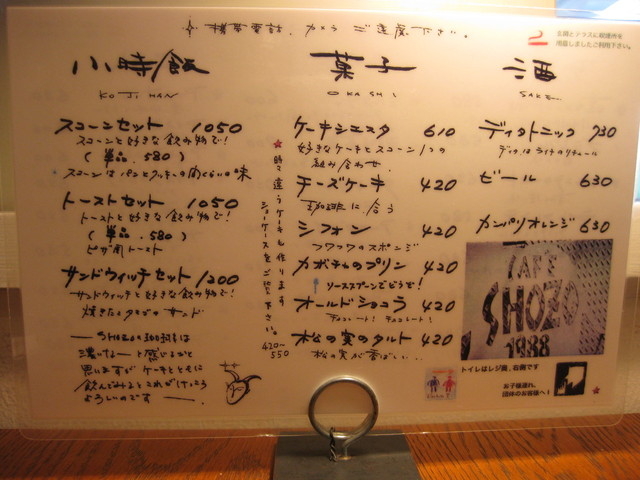 携帯電話、カメラ ご遠慮下さい。
2
玄関とテラスに喫煙所を
用意しましたご利用下さい。
小時飯
KOJIHAN
スコーンセット 1050
スコーンと好きな飲み物で!
(単品.580)
スコーンは パンとクッキーの間くらいの味
トーストセット 1050
トーストと好きな飲み物で!
(単品.580)
ピザ風トースト
サンドウィッチセット 1200
サンドウィッチと好きな飲み物で!
SHOZOの
ケーキとともに
菓子
OKASHI
ケーキシエスタ 610
好きなケーキとスコーン1つの
組み合わせ
チーズケーキ 420
珈琲に合う
シフォン 420
フワフワのスポンジ
カボチャのプリン 420
ソーススプーンでどうぞ!
オールドショコラ 420
チョコレート! チョコレート!
松の実のタルト 420
松の実が香ばしい..
時々違うケーキも作ります
ショーケースをご覧下さい。
420~
550
酒
SAKE
ディタトニック 730
ディタは ライチのリキュール
ビール 630
カンパリオレンジ 630
CAFE
SHOZO
1988
トイレはレジ奥、右側です
お子様連れ、
団体のお客様へ!